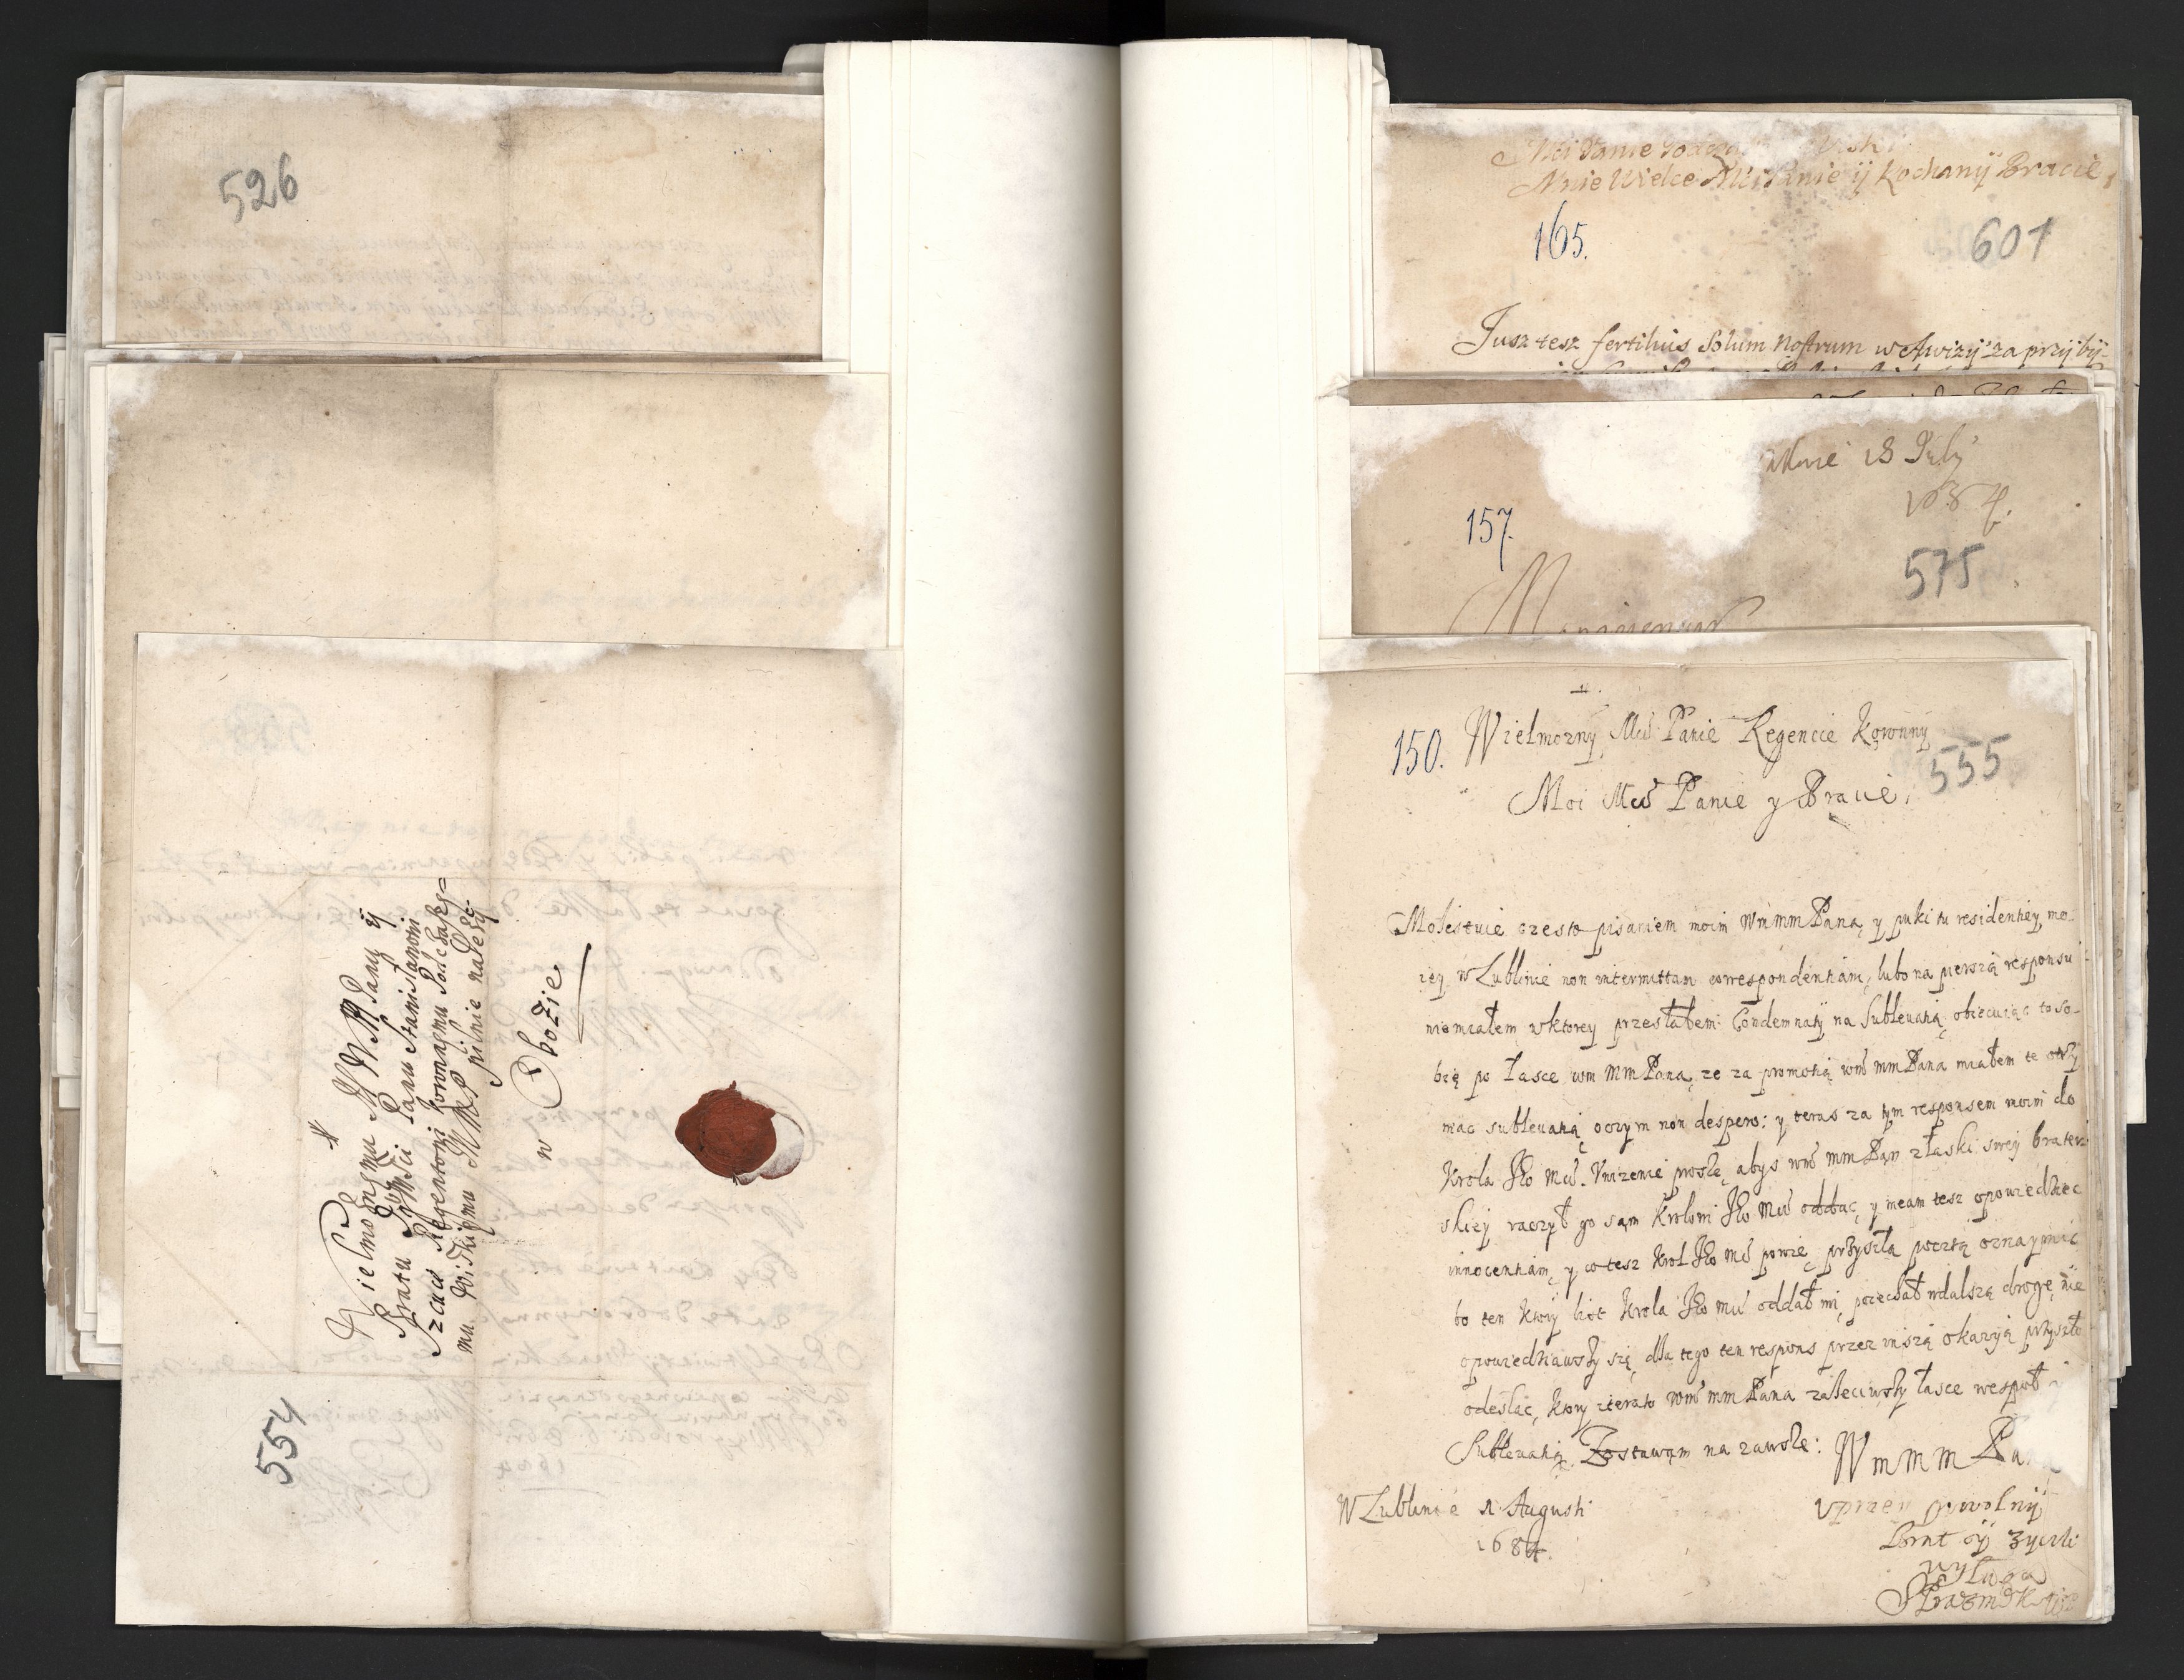 526
Wielmożnemu M W M Panu ij
Bratu Jego Mści Panu Stanisławowi
Szczuce Regentowi Koronnemu Podsta=
mu Wiskiemu M M P pilnie należy.
w Obozie
554
Mnie Wielce Mći Panie ij Kochanij Bracie,
165.
601
Jusz tesz fertilius Solum Nostrum w Awizij za przij bij-
18 July
1684.
157.
575
150. Wielmozny Mći Panie Regencie Koronny
555
Moi Mći Panie y Bracie,
Molestuie czesto pisaniem moim WmMMPana, y puki tu residentiey mo-
iey w Lublinie non intermittam correspondentiam, lubo na pierszą responsu
niemiałem wktorey przesłałem Condemnaty na Subleuatią obiecuiąc to so-
bię po łasce wm MMPana, ze za promotią wm mmPana miałem te otrzy
mac subleuatią oczym non despero: y teras za tym responsem moim do
Krola Jło Mći. Vnizenie proszę, abys wm mmPan z łaski swey braters
skiey raczył go sąm Krolowi Jło Mći oddac, y meam tesz opowiedziec
innocentiam, y co tesz Krol Jło Mć powie, przyszła pocztą oznaymic
bo ten ktory list Krola Jło Mći oddał mi, poiechał w dalszą drogę, nie
opowiedziawszy się, dla tego ten respons przez inszą okazyą przyszło
odesłac, ktory iterato wm mmPana zaleciwszy łasce wespoł
Subleuatią. Zostawąm na zawsze: WmMM Pana
W Lublinie Augusti
1684.
powolnij
Brat ij zycli
wy sługa